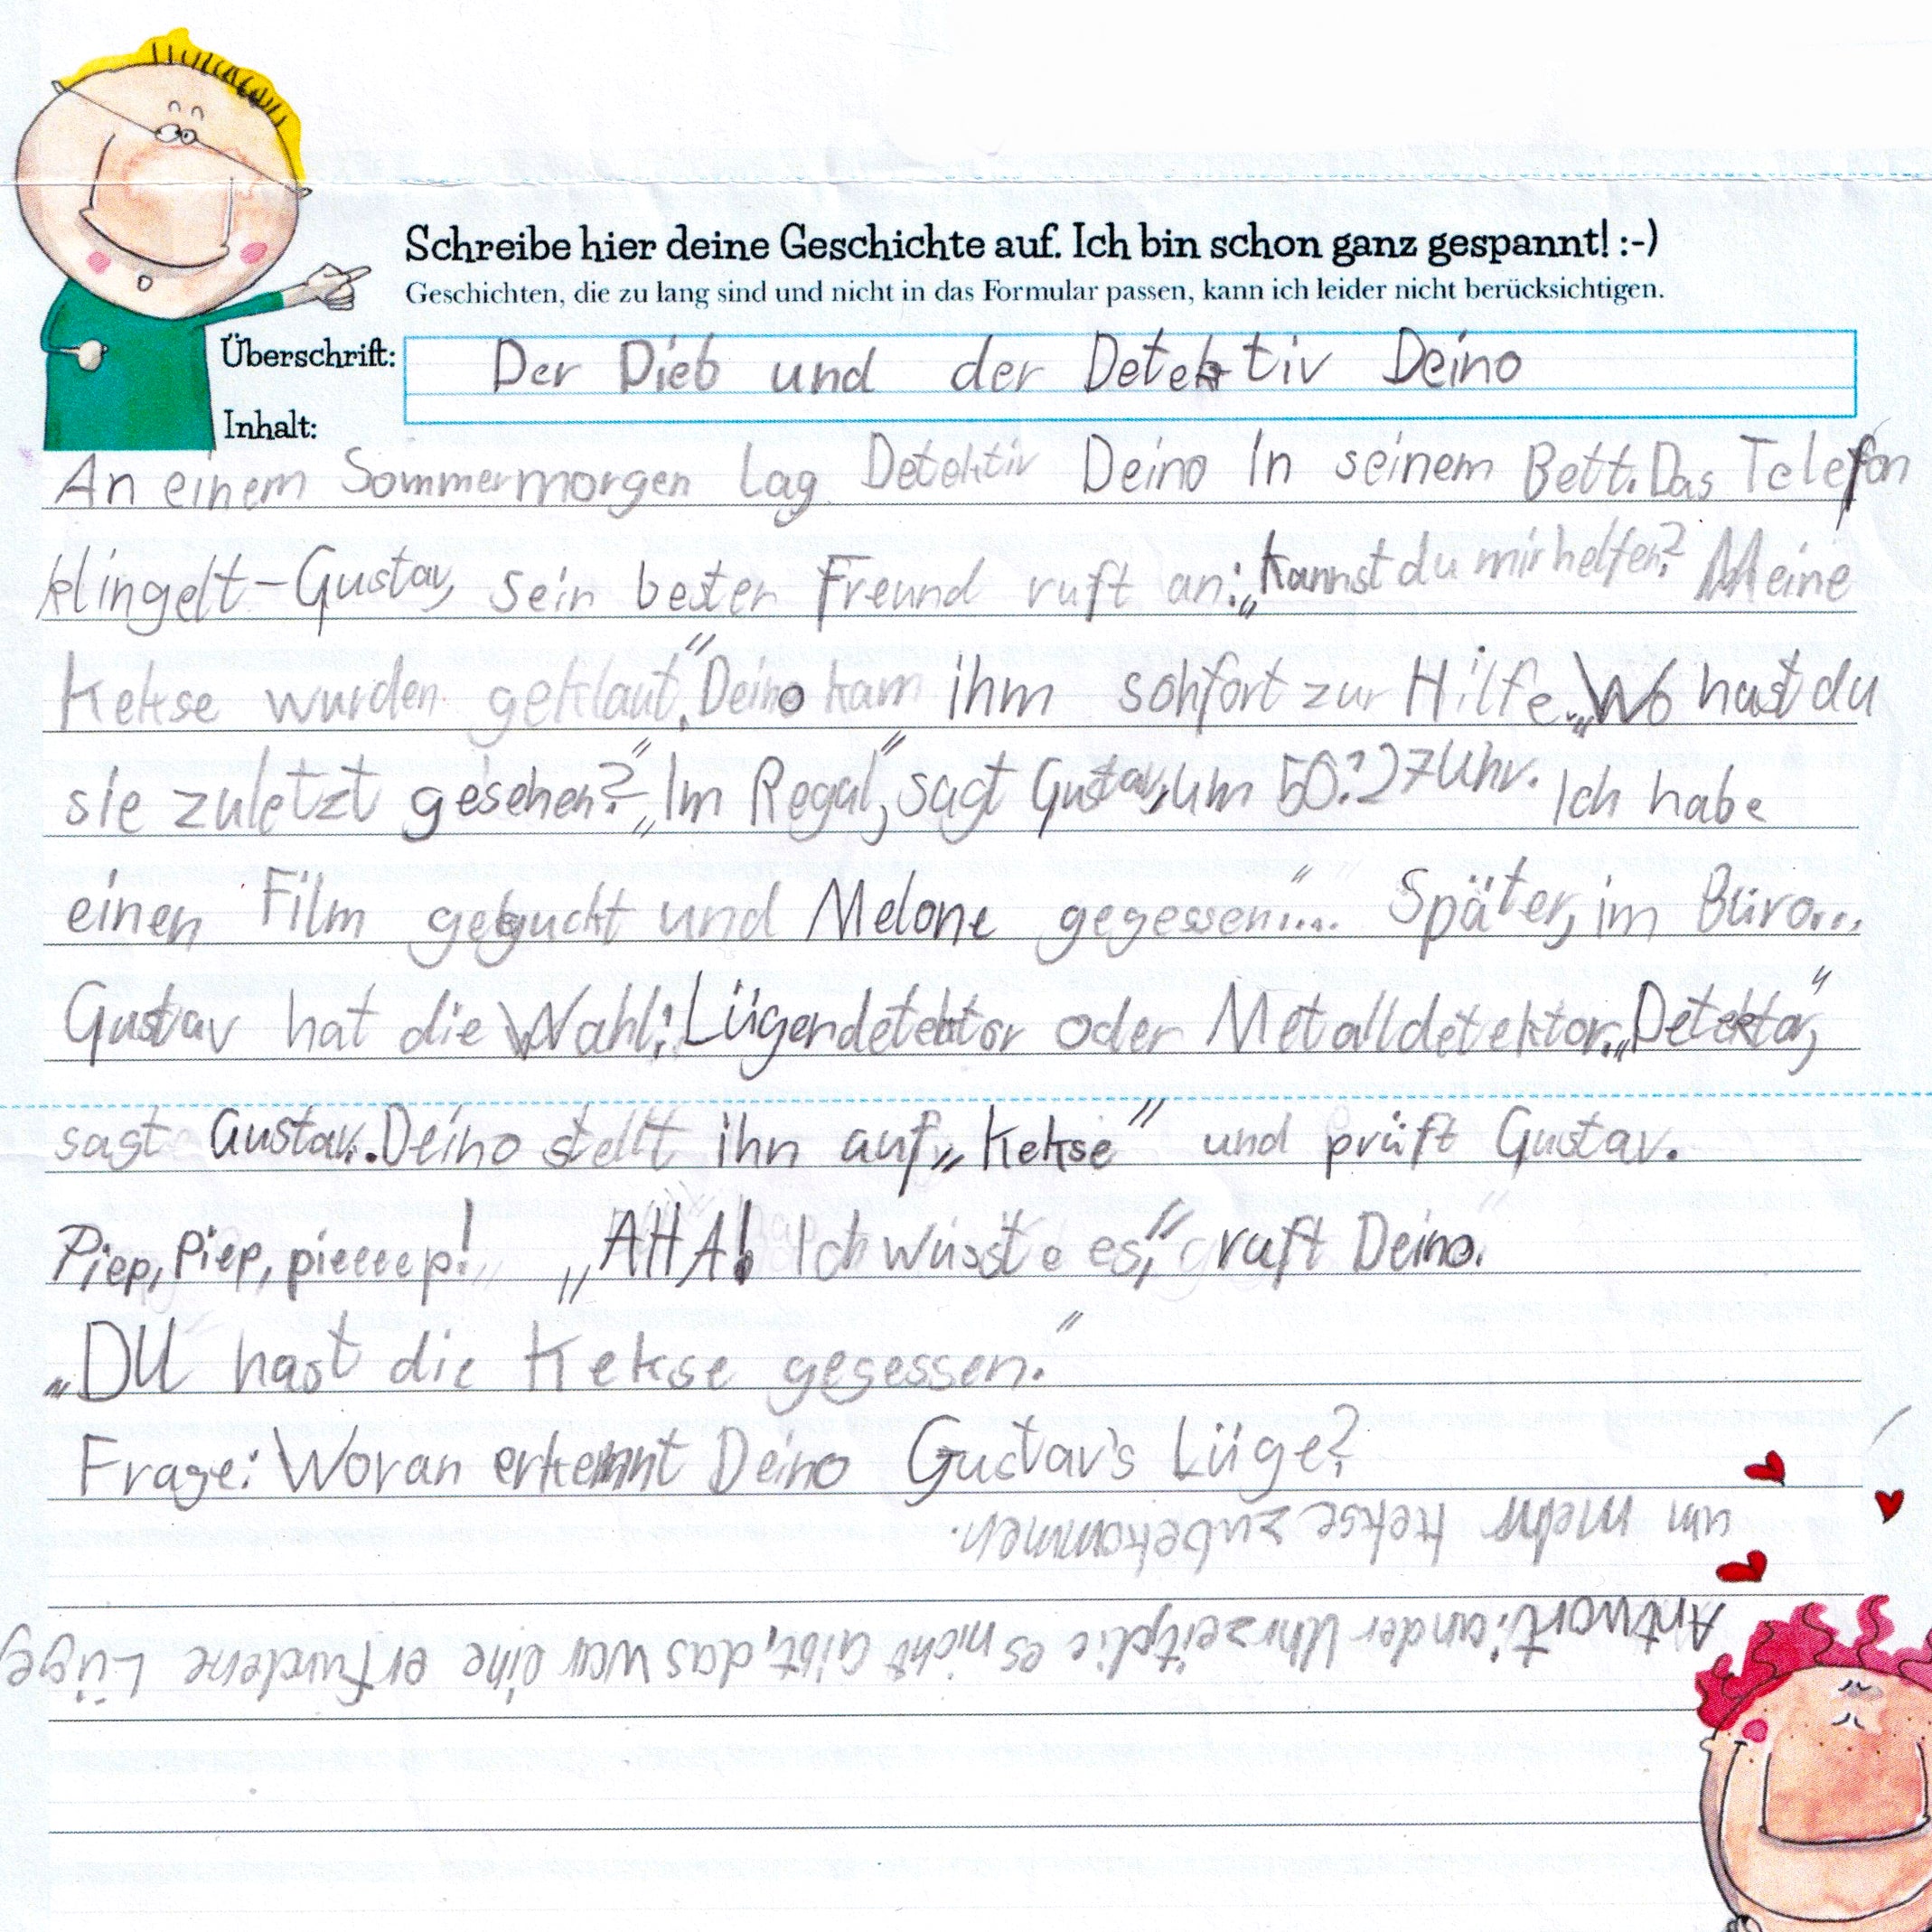 Schreibe hier deine Geschichte auf. Ich bin schon ganz gespannt! :-)
Geschichten, die zu lang sind und nicht in das Formular passen, kann ich leider nicht berücksichtigen.
Überschrift: Der Dieb und der Detektiv Deino
Inhalt:
An einem Sommermorgen lag Detektiv Deino In seinem Bett. Das Telefon
klingelt – Gustav, sein bester Freund ruft an: „Kannst du mir helfen? Meine
Kekse wurden geklaut." Deino kam ihm sohfort zur Hilfe. „Wo hast du
sie zuletzt gesehen?" „Im Regal", sagt Gustav, um 50:27 Uhr. Ich habe
einen Film geguckt und Melone gegessen"... Später, im Büro...
Gustav hat die Wahl: Lügendetektor oder Metalldetektor. „Detektor",
sagt Gustav. Deino stellt ihn auf „Kekse" und prüft Gustav.
Piep, Piep, pieeeep! „AHA! Ich wusste es," ruft Deino.
„DU hast die Kekse gegessen."
Frage: Woran erkennt Deino Gustav's Lüge?
Antwort: an der Uhrzeit, die es nicht gibt, das war eine erfundene Lüge
um mehr Kekse zubekommen.